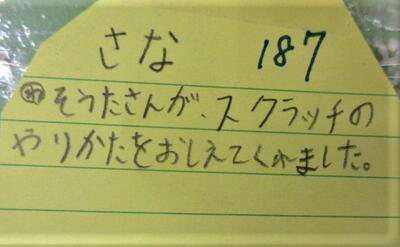 さな 187
そうたさんが、スクラッチの
やりかたをおしえてくれました。